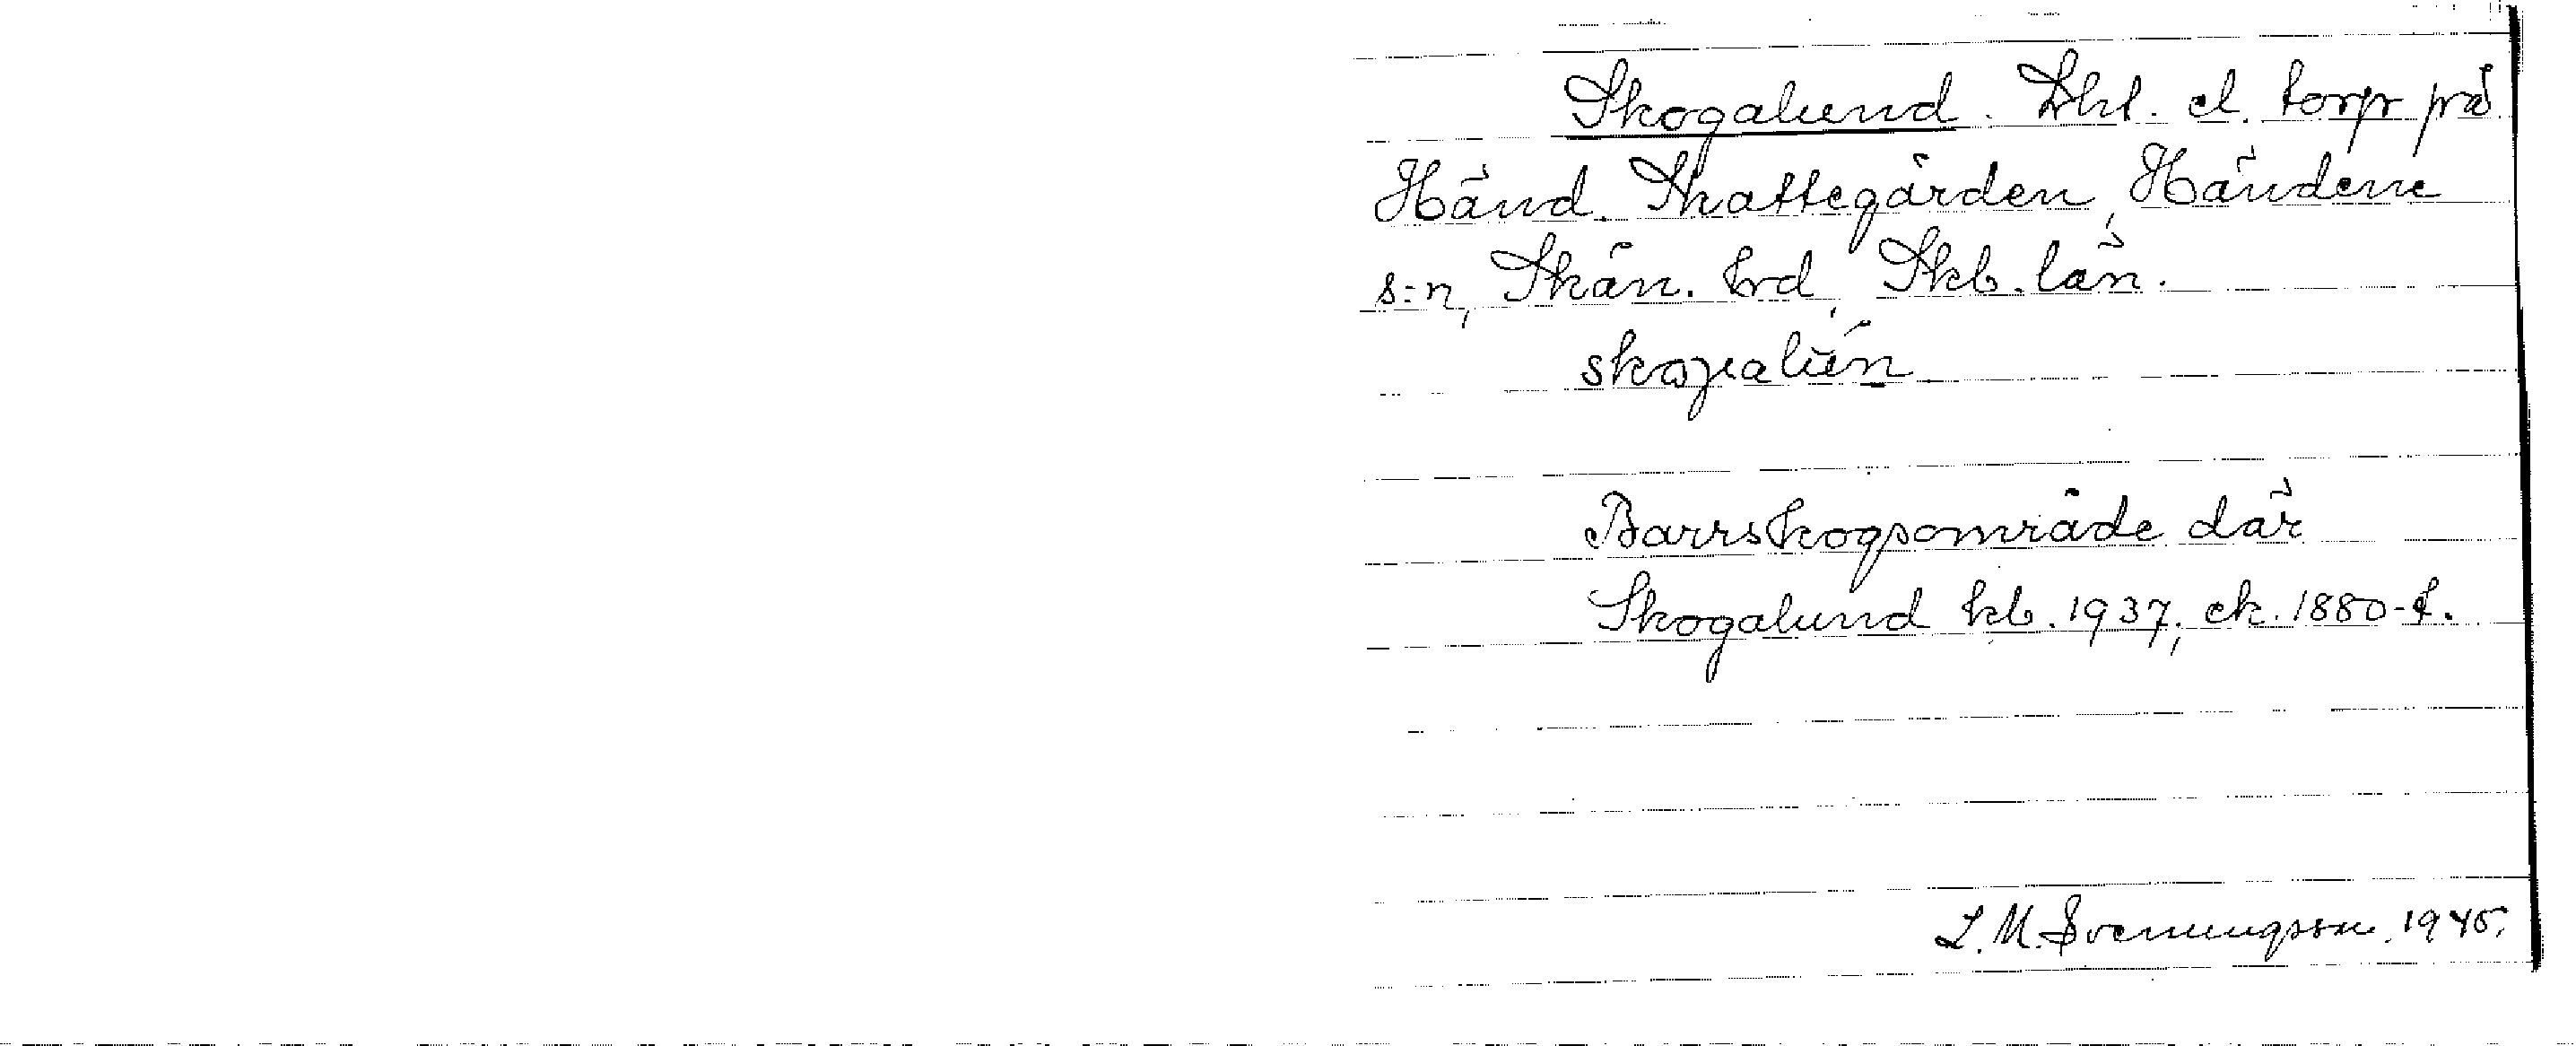 Skogalund. Lht. el. torp på
Händ. Skattegården, Händene
s:n, Skån. hrd, Skb. län.
skoga lun
Barrskogsområde där
Skogalund kb. 1937, ek. 1880-t.
L. M. Svenungsson 1945.